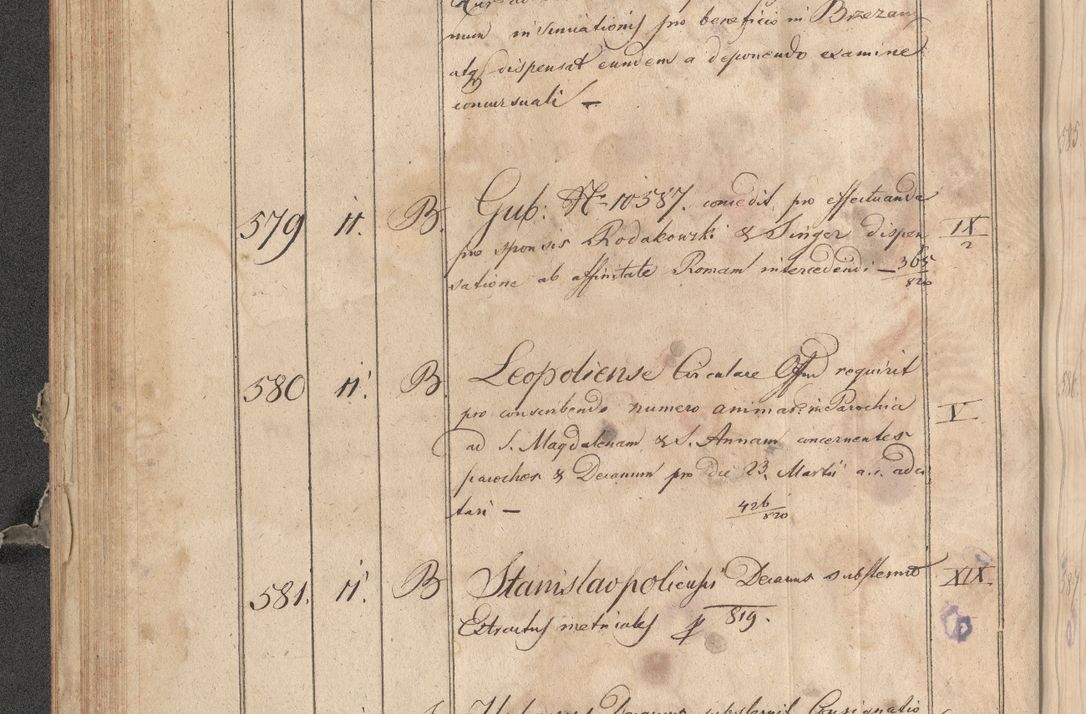 num insinuationis pro beneficio in Brzezan
atq dispensat eundem a deponendo examine
concursuali —
579 11. B. Gub: No 10587. concedit pro effectuanda IX/2
pro sponsis Rodakowski & Singer dispen
satione ab affinitate Romam intercedendi — 365/820
580 11. B. Leopoliense Circulare Offm requirit V
pro conscribendo numero animar: in Parochia
ad S. Magdalenam & S. Annam concernentes
parochos & Decanum pro die 23. Martii a.c. adci
tari — 426/820
581. 11. B Stanislaopoliensis Decanus substernit XIX.
Extractus metricales p 819.
Decanus substernit Consignatio